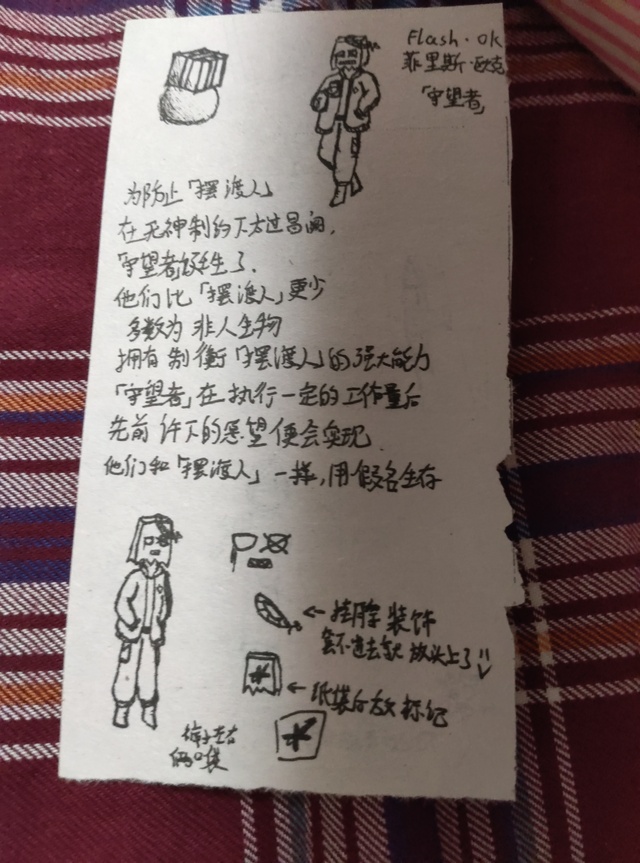 Flash·OK
菲里斯·欧克
「守望者」
为防止「摆渡人」
在死神制约下太过昌阔,
「守望者」诞生了.
他们比「摆渡人」更少
多数为非人生物
拥有制衡「摆渡人」的强大能力
「守望者」在执行一定的工作量后
先前许下的愿望便会实现.
他们和「摆渡人」一样,用假名生存
← 挂脖装饰
放头上了
← 纸袋后方标记
裤子左右
俩口袋